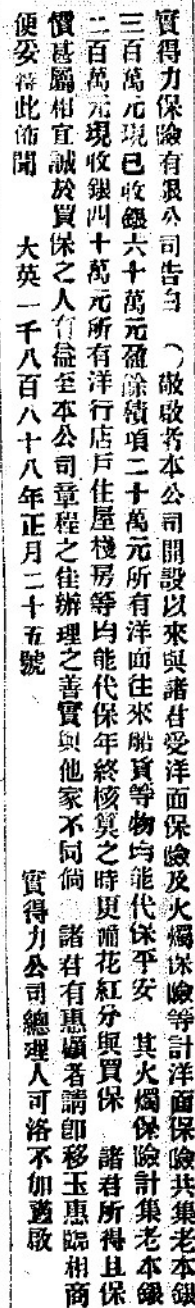 實得力保險有限公司告白　○敬啟者本公司開設以來與諸君受洋面保險及火燭保險等計洋面保險共集老本銀
三百萬元現已收銀六十萬元盈餘積項二十萬元所有洋面往來船貨等物均能代保平安　其火燭保險計集老本銀
二百萬元現收銀四十萬元所有洋行店戶住屋棧房等均能代保年終核算之時更酬花紅分與買保　諸君所得且保
價甚屬相宜誠於買保之人有益至本公司章程之佳辦理之善實與他家不同倘　諸君有惠顧者請卽移玉惠臨相商
便妥特此佈聞　　大英一千八百八十八年正月二十五號　　　　　實得力公司總理人可洛不加邇啟